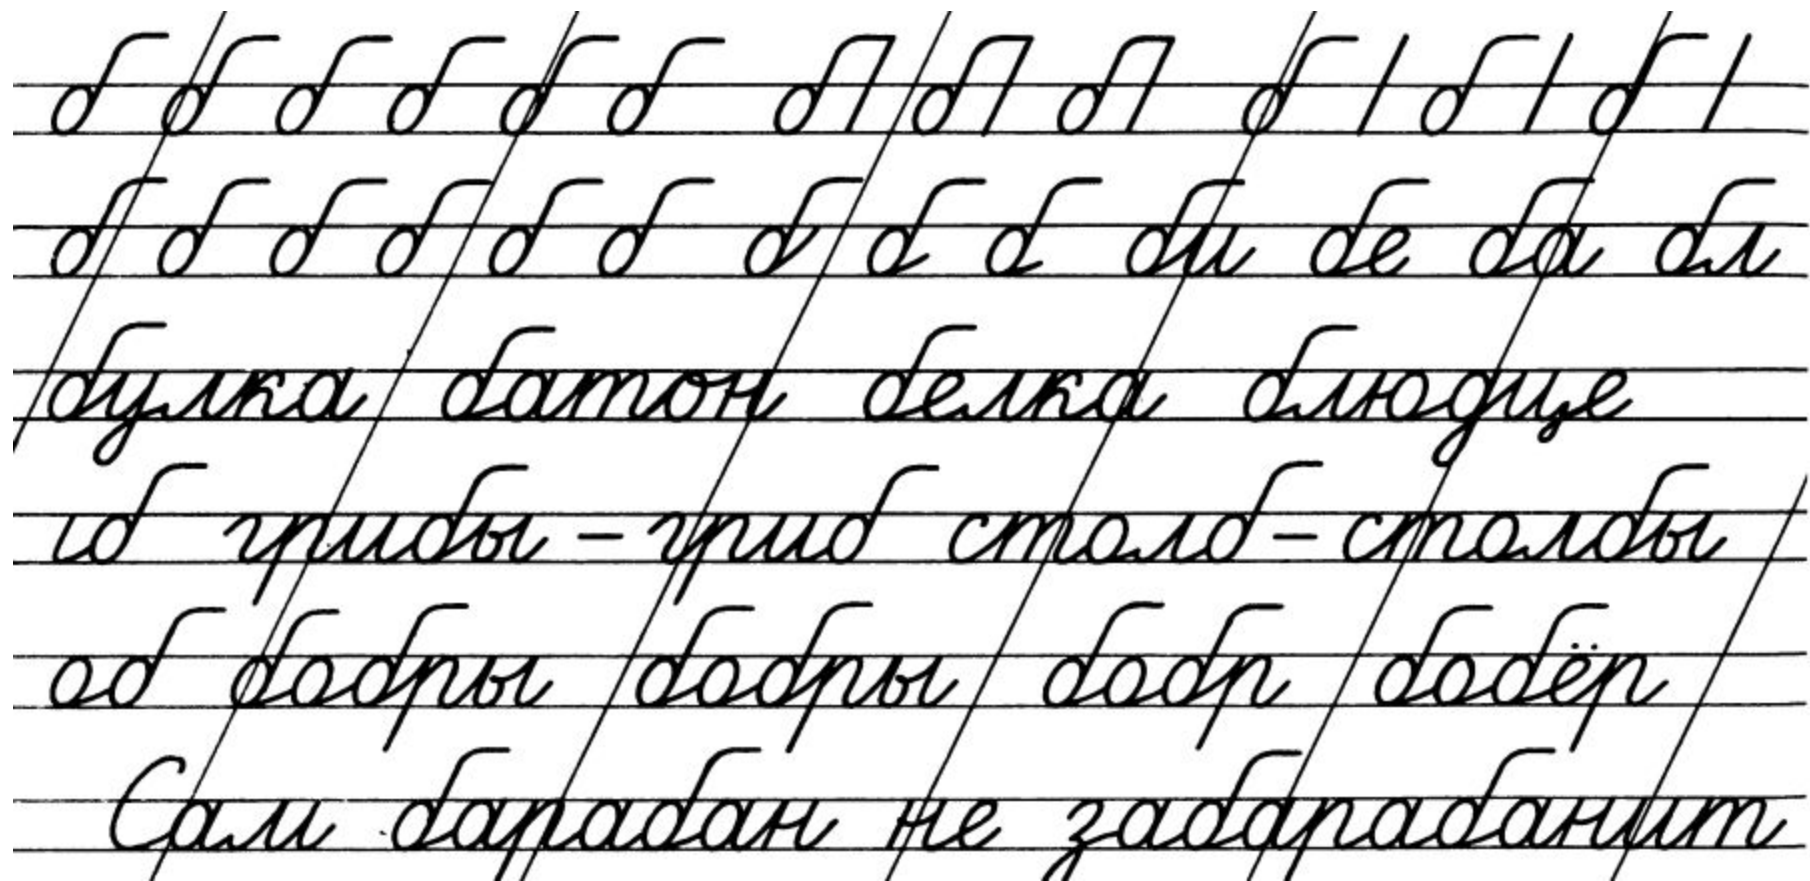 б б б б б б б б б б б б
б б б б б б б б б би бе ба бл
булка батон белка блюдце
иб грибы – гриб столб – столбы
об бобры бобры бобр бобёр
Сам барабан не забарабанит